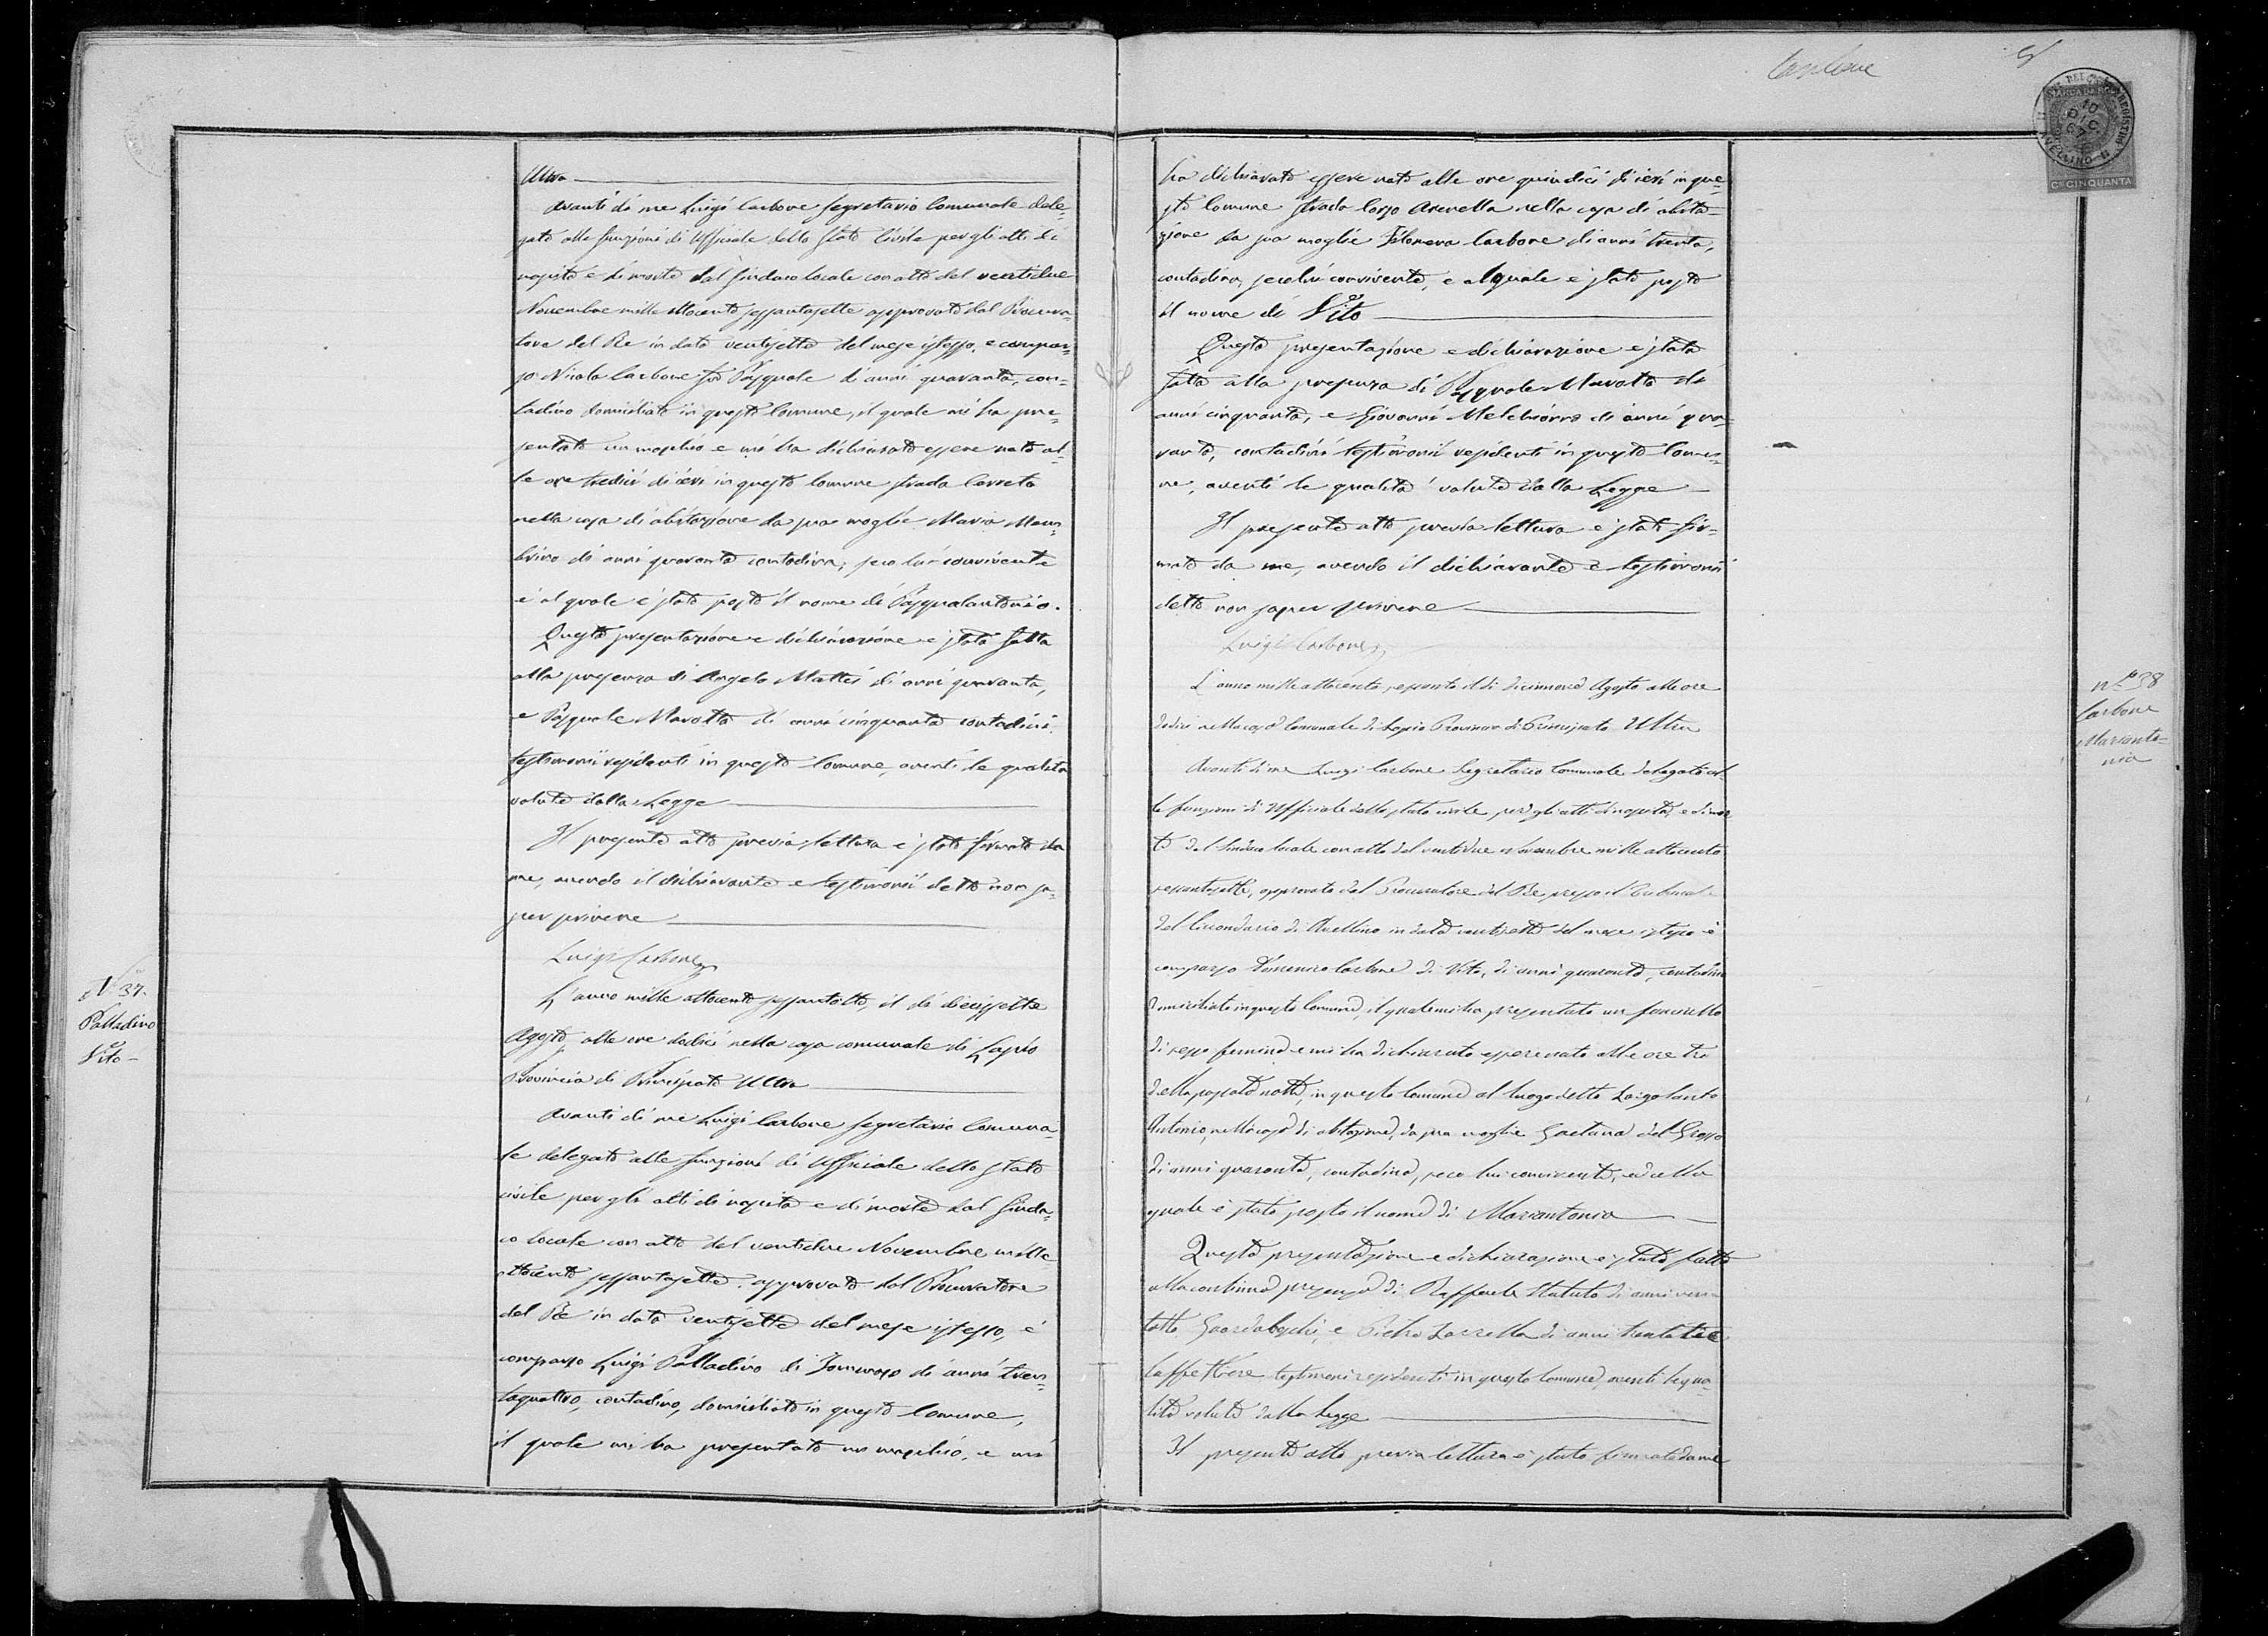 Ultra
Avanti di me Luigi Carbone Segretario Comunale dele-
gato alle funzioni di Uffiziale dello Stato Civile per gli atti di
nascita e di morte dal Sindaco locale con atto del ventidue
Novembre mille ottocento sessantasette approvato dal Procura-
tore del Re in data ventisette del mese istesso, è compar-
so Nicola Carbone fu Pasquale di anni quaranta, con-
tadino domiciliato in questo Comune, il quale mi ha pre-
sentato un maschio e mi ha dichiarato essere nato al-
le ore tredici di ieri in questo Comune strada
nella casa di abitazione da sua moglie Maria Mam-
brino di anni quaranta contadina, seco lui convivente
e al quale è stato posto il nome di Pasqualantonio.
Questa presentazione e dichiarazione è stata fatta
alla presenza di Angelo Mattei di anni quaranta,
e Pasquale Marotta di anni cinquanta contadini
testimonii residenti in questo Comune, aventi le qualità
volute dalla Legge
Il presente atto previa lettura è stato firmato da
me, avendo il dichiarante e testimonii detto non sa-
per scrivere
Luigi Carbone
N° 37.
Palladino
Vito
L'anno mille ottocento sessantotto, il dì diecissette
Agosto alle ore dodici nella casa comunale di Lapio
Provincia di Principato Ultra
Avanti di me Luigi Carbone Segretario Comuna-
le delegato alle funzioni di Uffiziale dello Stato
civile per gli atti di nascita e di morte dal Sinda-
co locale con atto del ventidue Novembre mille
ottocento sessantasette approvato dal Procuratore
del Re in data ventisette del mese istesso, è
comparso Luigi Palladino di Tommaso di anni tren-
taquattro, contadino, domiciliato in questo Comune,
il quale mi ha presentato un maschio, e mi
Carbone
10
DIC.
67
AVELLINO
CMI CINQUANTA
ha dichiarato essere nato alle ore quindici di ieri in que-
sto Comune strada Corso Arenella nella casa di abita-
zione da sua moglie Filomena Carbone di anni trenta,
contadina, seco lui convivente, e al quale è stato posto
il nome di Vito
Questa presentazione e dichiarazione è stata
fatta alla presenza di Pasquale Marotta di
anni cinquanta, e Giovanni Melchiorro di anni qua-
ranta, contadini testimonii residenti in questo Comu-
ne, aventi le qualità volute dalla Legge
Il presente atto previa lettura è stato fir-
mato da me, avendo il dichiarante e testimonii
detto non saper scrivere
Luigi Carbone
N° 38
Carbone
Marianto-
nia
L'anno mille ottocento sessantotto il dì diciannove Agosto alle ore
dodici nella casa Comunale di Lapio Provincia di Principato Ultra
Avanti di me Luigi Carbone Segretario Comunale delegato al-
le funzioni di Uffiziale dello stato civile per gli atti di nascita, e di mor-
te dal Sindaco locale con atto del ventidue Novembre mille ottocento
sessantasette, approvato dal Procuratore del Re presso il Tribunale
del Circondario di Avellino in data ventisette del mese istesso è
comparso Domenico Carbone di Vito, di anni quaranta, contadino
domiciliato in questo Comune, il quale mi ha presentato un fanciullo
di sesso feminino e mi ha dichiarato essere nato alle ore tre
della passata notte, in questo Comune al luogo detto Largo Santo
Antonio, nella casa di abitazione, da sua moglie Gaetana del Grosso
di anni quaranta, contadina, seco lui convivente, ed alla
quale è stato posto il nome di Mariantonia
Questa presentazione e dichiarazione è stata fatta
alla continua presenza di Raffaele Statuto di anni ven-
totto Guardaboschi, e Pietro Zarrella di anni trentatre
Caffettiere testimoni residenti in questo Comune, aventi le qua-
lità volute dalla Legge
Il presente atto previa lettura è stato firmato da me